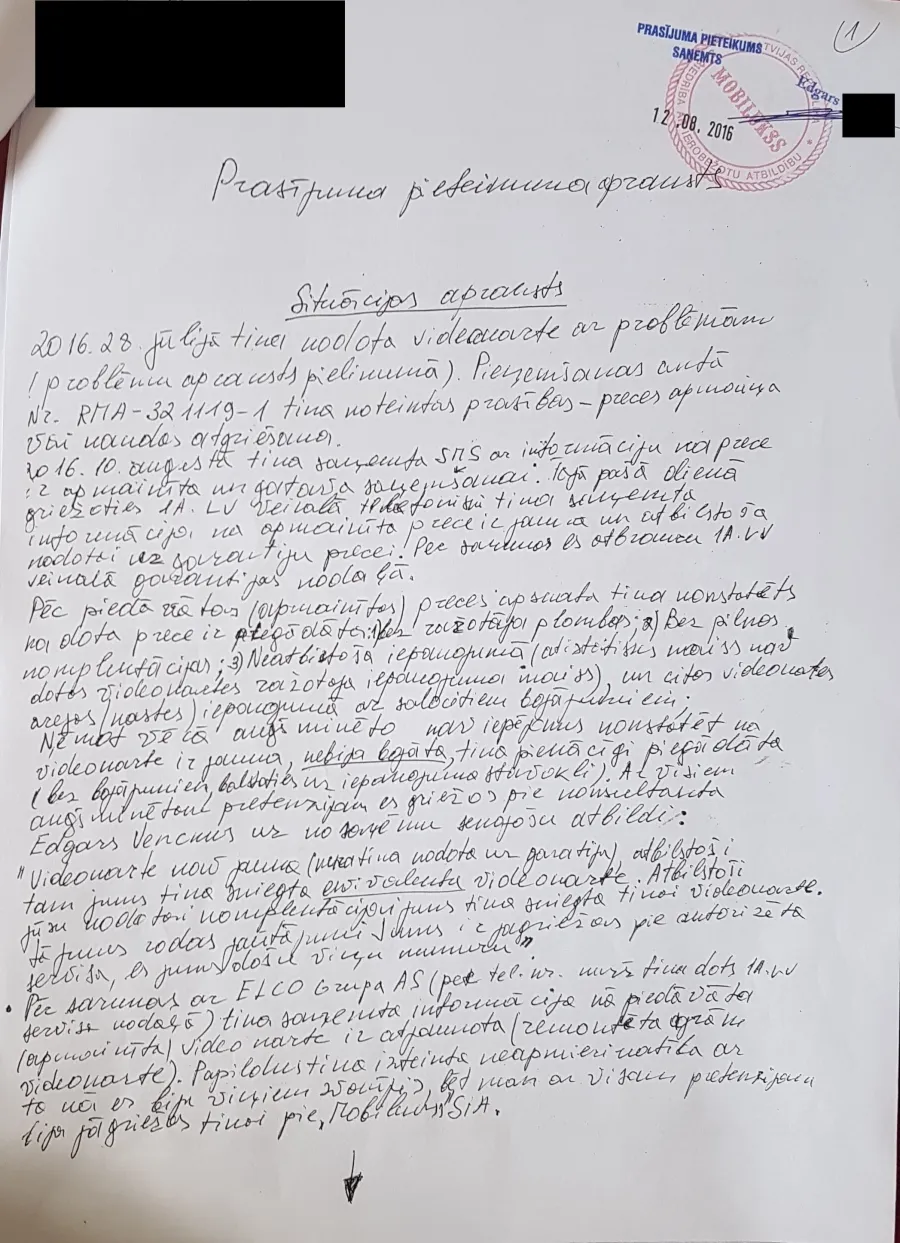 1
PRASĪJUMA PIETEIKUMS
SAŅEMTS
Edgars
12.08.2016
MOBILUKSS
IEROBEŽOTU ATBILDĪBU
Prasījuma pieteikuma apraksts
Situācijas apraksts
2016. 28. jūlijā tika nodota videokarte ar problēmām
(problēmu apraksts pielikumā). Pieņemšanas aktā
Nr. RMA-321119-1 tika noteiktas prasības - preces apmaiņa
vai naudas atgriešana.
2016. 10. augustā tika saņemta SMS ar informāciju ka prece
ir apmainīta un gatava saņemšanai. Tajā pašā dienā
griežoties 1A.LV veikalā telefoniski tika saņemta
informācija, ka apmainīta prece ir jauna un atbilstoša
nodotai uz garantiju precei. Pēc sarunas es atbraucu 1A.LV
veikalā garantijas nodaļā.
Pēc piedāvātas (apmainītas) preces apskata tika konstatēts
ka dota prece ir piegādāta: 1) bez ražotāja plombas; 2) Bez pilnas
komplektācijas; 3) Neatbilstošā iepakojumā (antistatisks maiss nav
dotās videokartes ražotāja iepakojuma maiss), un citas videokartes
ārējos (kastes) iepakojumā ar salocītiem bojājumiem.
Ņemot vērā augš minēto nav iepējams konstatēt ka
videokarte ir jauna, nebija bojāta, tika pienācīgi piegādāta
(bez bojājumiem, balstoties uz iepakojuma stāvokli). Ar visiem
augšminētam pretenzijam es griežos pie konsultanta
Edgars Venckus uz ko saņēmu sekojošu atbildi:
"Videokarte nav jauna (kura tika nodota uz garatiju), atbilstoši
tam jums tika sniegta ekvivalenta videokarte. Atbilstoši
jūsu nodotai komplektācijai jums tika sniegta tikai videokarte.
Ja jums rodas jautājumi Jums ir jāgriežas pie autorizēta
servisa, es jums došu viņu numuru"
• Pēc sarunas ar ELKO Grupa AS (pēc tel. nr. kurš tika dots 1A.LV
servisa nodaļā) tika saņemta informācija kā piedāvāta
(apmainīta) video karte ir atjaunota (remontēta
videokarte). Papildus tika izteikta neapmierinatība ar
to kā es biju viņiem zvanījis, bet man ar visam pretenzijam
bija jāgriežas tikai pie "Mobilukss" SIA.